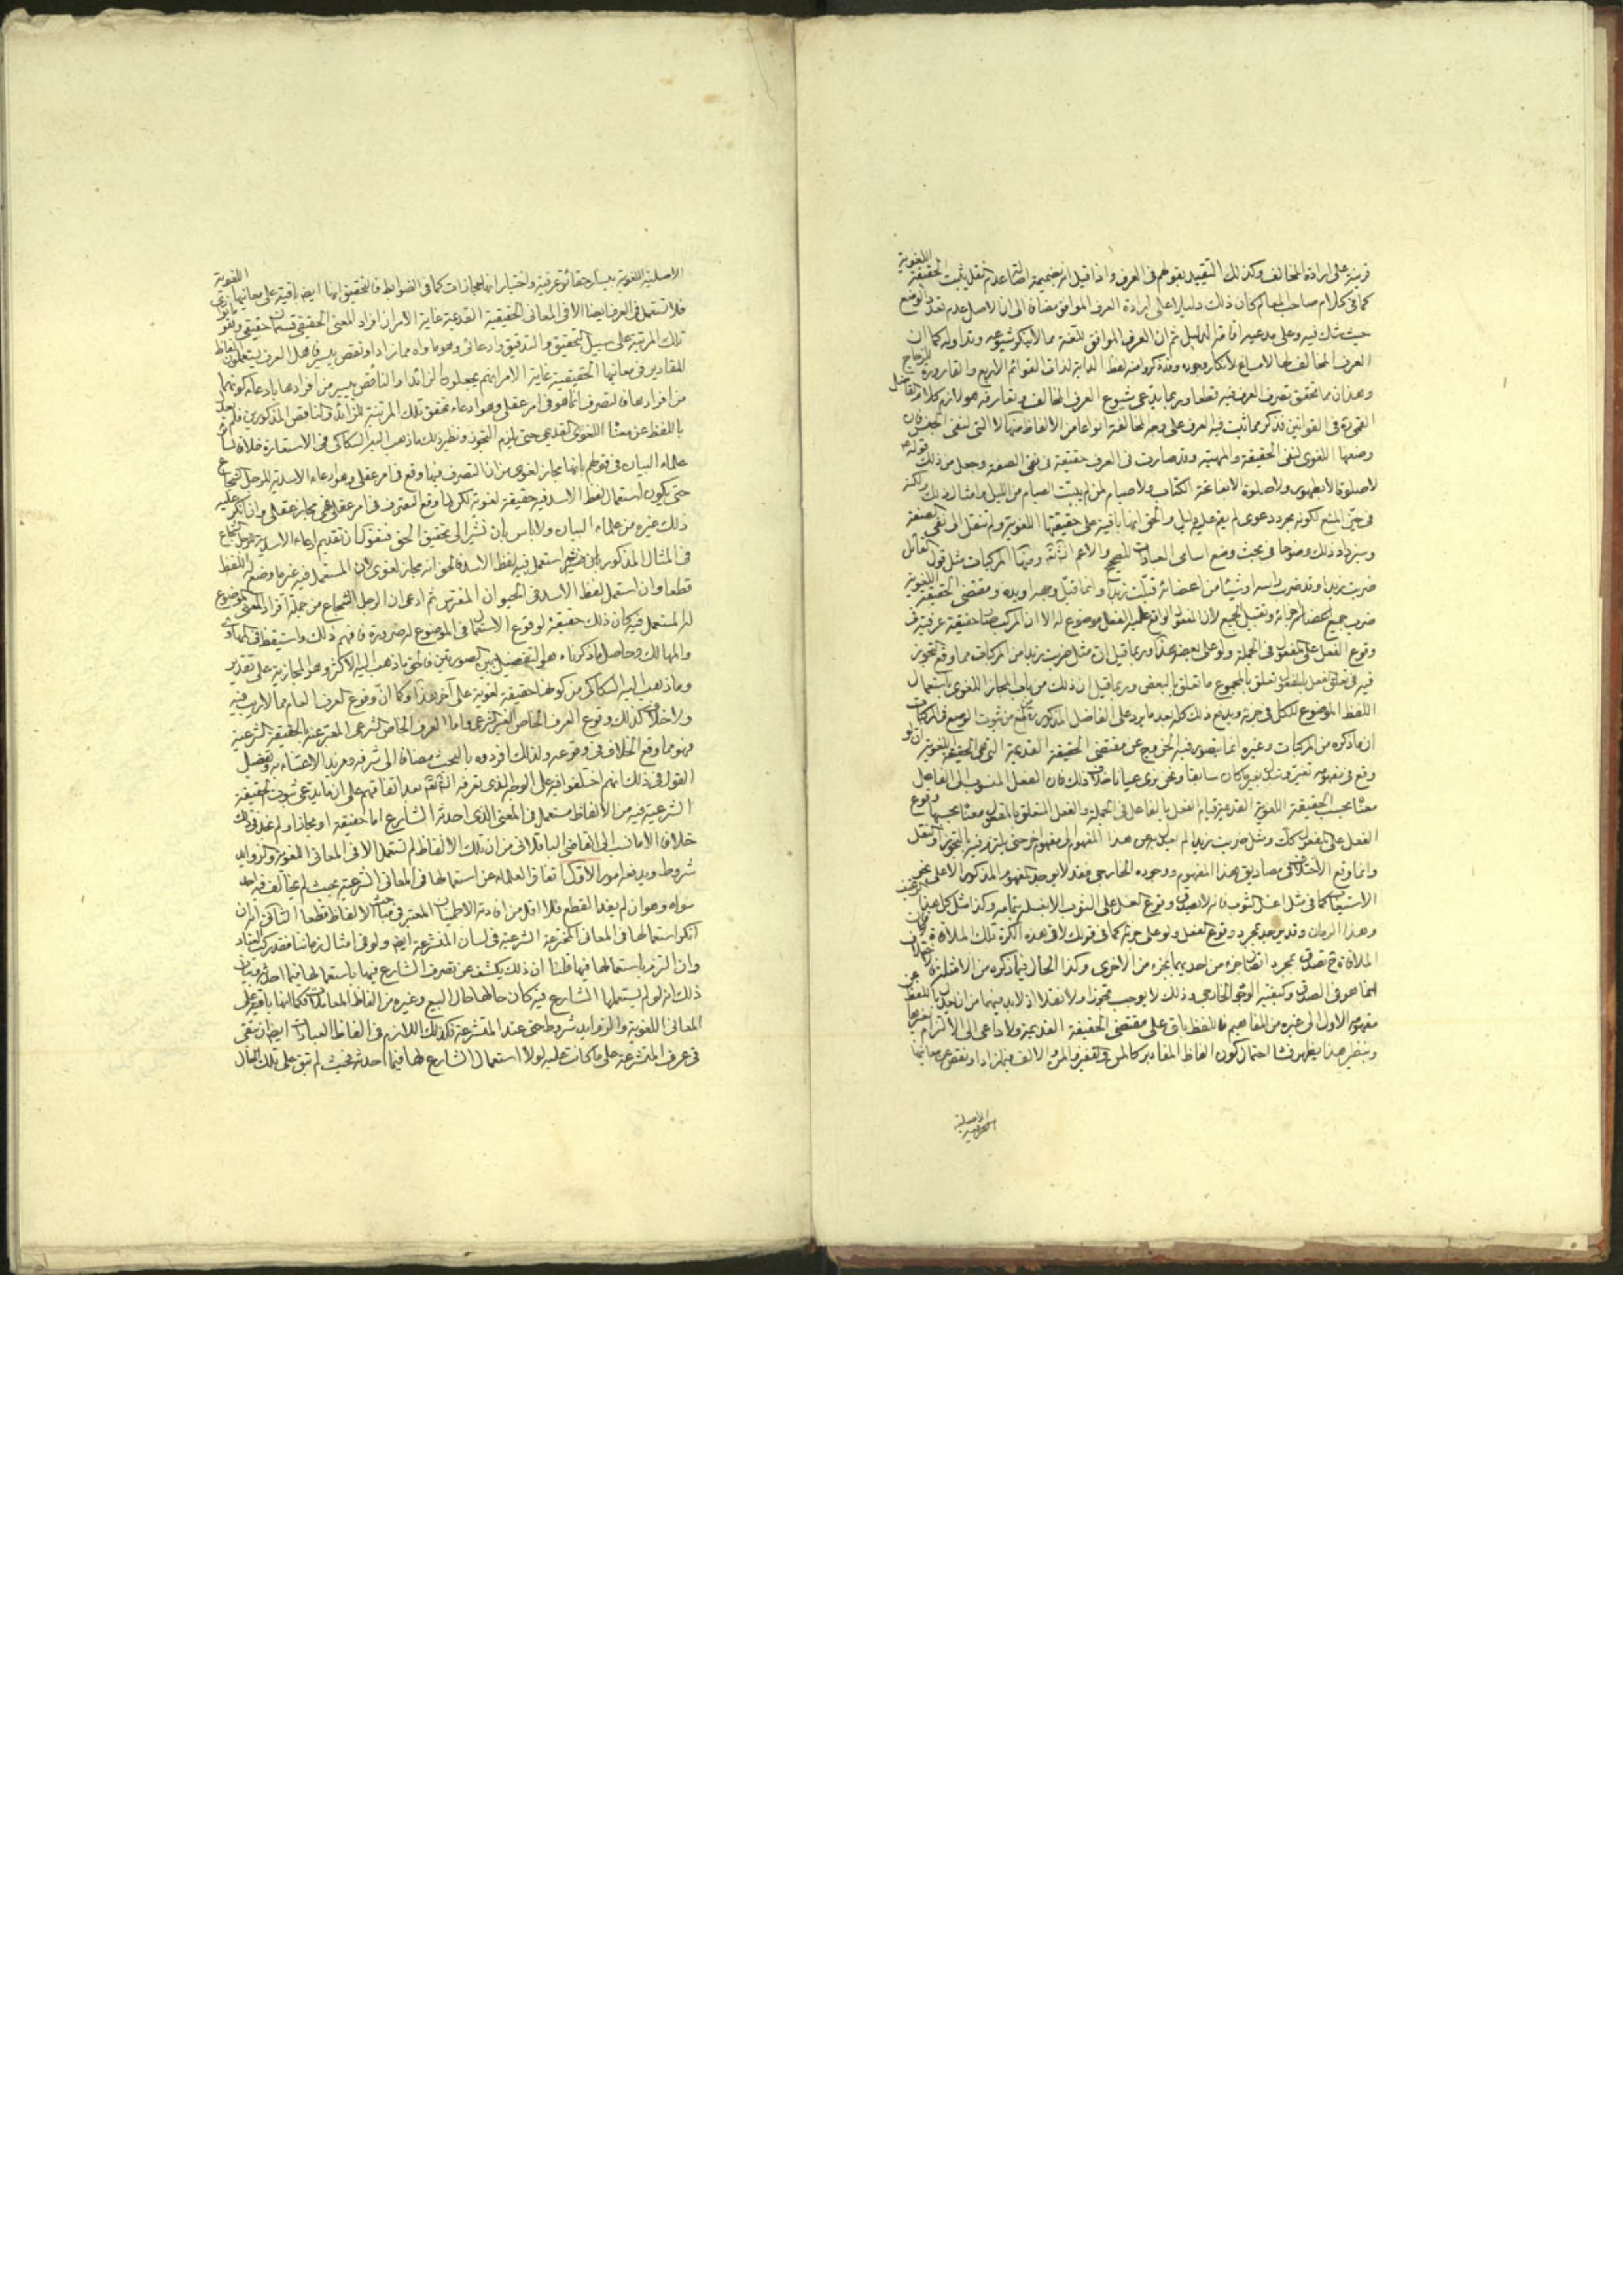 قرينة على ارادة المخالف وكذلك التقييد بقولهم فى العرف واذا قيل انه بضميمة اصالة عدم النقل يثبت الحقيقة اللغوية
كما فى كلام صاحب المعالم كان ذلك دليلا على ارادة العرف الموافق مضافا الى ان الاصل عدم تعدد الوضع
حيث شك فيه وعلى مدعيه اقامة الدليل ثم ان العرف الموافق للغة مما لا ينكر شيوعه وتداوله كما ان
العرف المخالف لها لا مساغ لانكار وجوده وقد ذكروا منه لفظ الدابة لذات القوائم الاربع والقارورة للزجاج
وهذان مما تحقق تصرف العرف فيه قطعا وربما يدعى شيوع العرف المخالف وتعارفه هو لازم كلام الفاضل
القمى ره فى القوانين فذكر مما ثبت فيه العرف على وجه المخالفة انواعا من الالفاظ منها لا التى لنفى الجنس فان
وضعها اللغوى لنفى الحقيقة والمهية وقد صارت فى العرف حقيقة فى نفى الصفة وجعل من ذلك قوله
لا صلوة الا بطهور ولا صلوة الا بفاتحة الكتاب ولا صيام لمن لم يبيت الصيام من الليل وامثال ذلك ولكنه
فى حيز المنع لكونه مجرد دعوى لم يقم عليه دليل والحق انها باقية على حقيقتها اللغوية ولم تنقل الى نفى الصفة
وسيزداد ذلك وضوحا فى بحث وضع اسامى العبادات للصحيح والاعم انش تع ومنها المركبات مثل قول القائل
ضربت زيدا وقد ضرب راسه او شيئا من اعضائه قبلت زيدا وانما قبل وجهه او يده ومقتضى الحقيقة اللغوية
ضرب جميع اعضائه وتقبيل الجميع لان المفعول الواقع عليه الفعل موضوع له الا ان المركب صار حقيقة عرفية فى
وقوع الفعل على المفعول فى الجملة ولو على بعضه هذا وربما قيل ان مثل ضربت زيدا من المركبات مما وقع التجوز
فيه فى تعلق الفعل بالمفعول تعلق بالمجموع ما تعلق بالبعض وربما قيل ان ذلك من باب المجاز اللغوى باستعمال
اللفظ الموضوع للكل فى جزئه ويدفع ذلك كله بعد ما يرد على الفاضل المذكور ره من منع ثبوت الوضع فى المركبات
ان ما ذكره من المركبات وغيره انما يتصور فيه الخروج عن مقتضى الحقيقة القديمة التى هى الحقيقة اللغوية ان لو
وقع فى مفهومه تغير وتبدل بغير ما كان سابقا ونحن نرى عيانا خلاف ذلك فان الفعل المنسوب الى الفاعل
معناه بحسب الحقيقة اللغوية القديمة قيام الفعل بالفاعل فى الجملة والفعل المتعلق بالمفعول معناه بحسبها وقوع
الفعل على المفعول كك ومثل ضربت زيدا لم يعدل عن هذا المفهوم الى مفهوم اخر حتى يلتزم فيه التجوز او النقل
وانما وقع الاختلاف فى مصاديق هذا المفهوم ووجوده الخارجى فقد لا يوجد المفهوم المذكور الا على نحو
الاستيعاب كما فى مثل غسل الثوب فانه لا يصدق وقوع الغسل على الثوب الا بغسله بتمامه وكذا مثل اكل هذا الرغيف
وهذا الرمان وقد يوجد بمجرد وقوع الفعل ولو على جزئه كما فى قولك لاقى هذه الكرة تلك الملاقاة فان
الملاقاة ح تصدق بمجرد اتصال جزء من احديهما بجزء من الاخرى وكذا الحال فيما ذكره من الامثلة فالاختلاف
انما هو فى الصدق وكيفية الوجود الخارجى وذلك لا يوجب تجوزا ولا نقلا اذ لا بد فيهما من ان يعدل باللفظ عن
مفهومه الاول الى غيره من المفاهيم فاللفظ باق على مقتضى الحقيقة القديمة ولا داعى الى الالتزام بخروجها
وبنظير هذا يظهر فساد احتمال كون الفاظ المقادير كالمن والقفيز والمد والالف فيما زاد او نقص عن معانيها
الاصلية
الاصلية اللغوية بيسير حقائق عرفية واختيار انها مجازات كما فى الضوابط فالتحقيق انها ايضا باقية على معانيها اللغوية
فلا تستعمل فى العرف ايضا الا فى المعانى الحقيقية القديمة غاية الامر ان افراد المعنى الحقيقى قسمان حقيقى وهو
تلك المرتبة على سبيل التحقيق والتدقيق وادعائى وهو ما واه مما زاد او نقص بيسير فاهل العرف يستعملون الفاظ
المقادير فى معانيها الحقيقية غاية الامر انهم يجعلون الزائد او الناقص بيسير من افرادها بادعاء كونهما
من افرادها فالتصرف انما هو فى امر عقلى وهو ادعاء تحقق تلك المرتبة للزائد والناقص المذكورين فلم يعدل
باللفظ عن معناه اللغوى القديمى حتى يلزم التجوز ونظير ذلك ما ذهب اليه السكاكى فى الاستعارة خلافا لسائر
علماء البيان فى قولهم بانها مجاز لغوى من ان التصرف فيها وقع فى امر عقلى وهو ادعاء الاسدية للرجل الشجاع
حتى يكون استعمال لفظ الاسد فيه حقيقة لغوية لكن لما وقع التصرف فى امر عقلى فهى مجاز عقلى وان انكر عليه
ذلك غيره من علماء البيان ولا باس بان نشير الى تحقيق الحق فنقول ان تقديم ادعاء الاسدية للرجل الشجاع
فى المثال المذكور بان استعمل فيه لفظ الاسد فالحق انه مجاز لغوى لان المستعمل فيه غير ما وضع له اللفظ
قطعا وان استعمل لفظ الاسد فى الحيوان المفترس ثم ادعى ان الرجل الشجاع من جملة افراد المعنى الموضوع
له المستعمل فيه كان ذلك حقيقة لوقوع الاستعمال فى الموضوع له ضرورة فافهم ذلك واستيقظ فى المهاوى
والمهالك وحاصل ما ذكرناه هو التفصيل بين الصورتين فالحق ما ذهب اليه الاكثر وهو المجازية على تقدير
وما ذهب اليه السكاكى من كونها حقيقة لغوية على آخر هذا وكما ان وقوع العرف العام مما لا ريب فيه
ولا خلاف كذلك وقوع العرف الخاص الغير الشرعى واما العرف الخاص الشرعى المعبر عنه بالحقيقة الشرعية
فهو مما وقع الخلاف فى وقوعه ولذلك افردوه بالبحث مضافا الى شرفه ومزيد الاعتناء به وتفصيل
القول فى ذلك انهم اختلفوا فيه على الوجه الذى تعرفه انش تع بعد اتفاقهم على ان ما يدعى ثبوت الحقيقة
الشرعية فيه من الالفاظ مستعمل فى المعنى الذى احدثه الشارع اما حقيقة او مجازا ولم نجد فى ذلك
خلافا الا ما نسب الى القاضى الباقلانى من ان تلك الالفاظ لم تستعمل الا فى المعانى اللغوية والزوايد
شروط ويدفعه امور الاول اتفاق العلماء عن استعمالها فى المعانى الشرعية بحيث لم يخالف فيه احد
سواه وهو ان لم يفد القطع فلا اقل من افادته الاطمينان المعتبر فى مباحث الالفاظ قطعا الثانى انه ان
انكر استعمالها فى المعانى المخترعة الشرعية فى لسان المتشرعة ايضا ولو فى امثال زماننا فقد ركب العناد
وان التزم باستعمالها فيها قلنا ان ذلك يكشف عن تصرف الشارع فيها باستعمالها فيما احدثه وبيان
ذلك انه لو لم يستعملها الشارع فيه كان حالها حال البيع وغيره من الفاظ المعاملات فكما انها باقية على
المعانى اللغوية والزوايد شروط حتى عند المتشرعة فكذلك اللازم فى الفاظ العبادات ايضا ان تبقى
فى عرف المتشرعة على ما كانت عليه لولا استعمال الشارع لها فيما احدثه فحيث لم تبق على تلك الحال